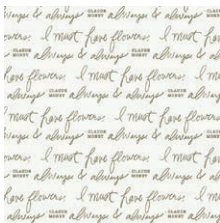 always & always CLAUDE MONET always & always CLAUDE MONET
flowers. I must have flowers. I must
CLAUDE MONET always & always CLAUDE MONET always
have flowers. I must have flowers.
always CLAUDE MONET always & always CLAUDE MONET
I must have flowers. I must have
always & always CLAUDE MONET always & always
flowers. I must have flowers. I must
CLAUDE MONET always & always CLAUDE MONET always
have flowers. I must have flowers.
always CLAUDE MONET always & always CLAUDE MONET